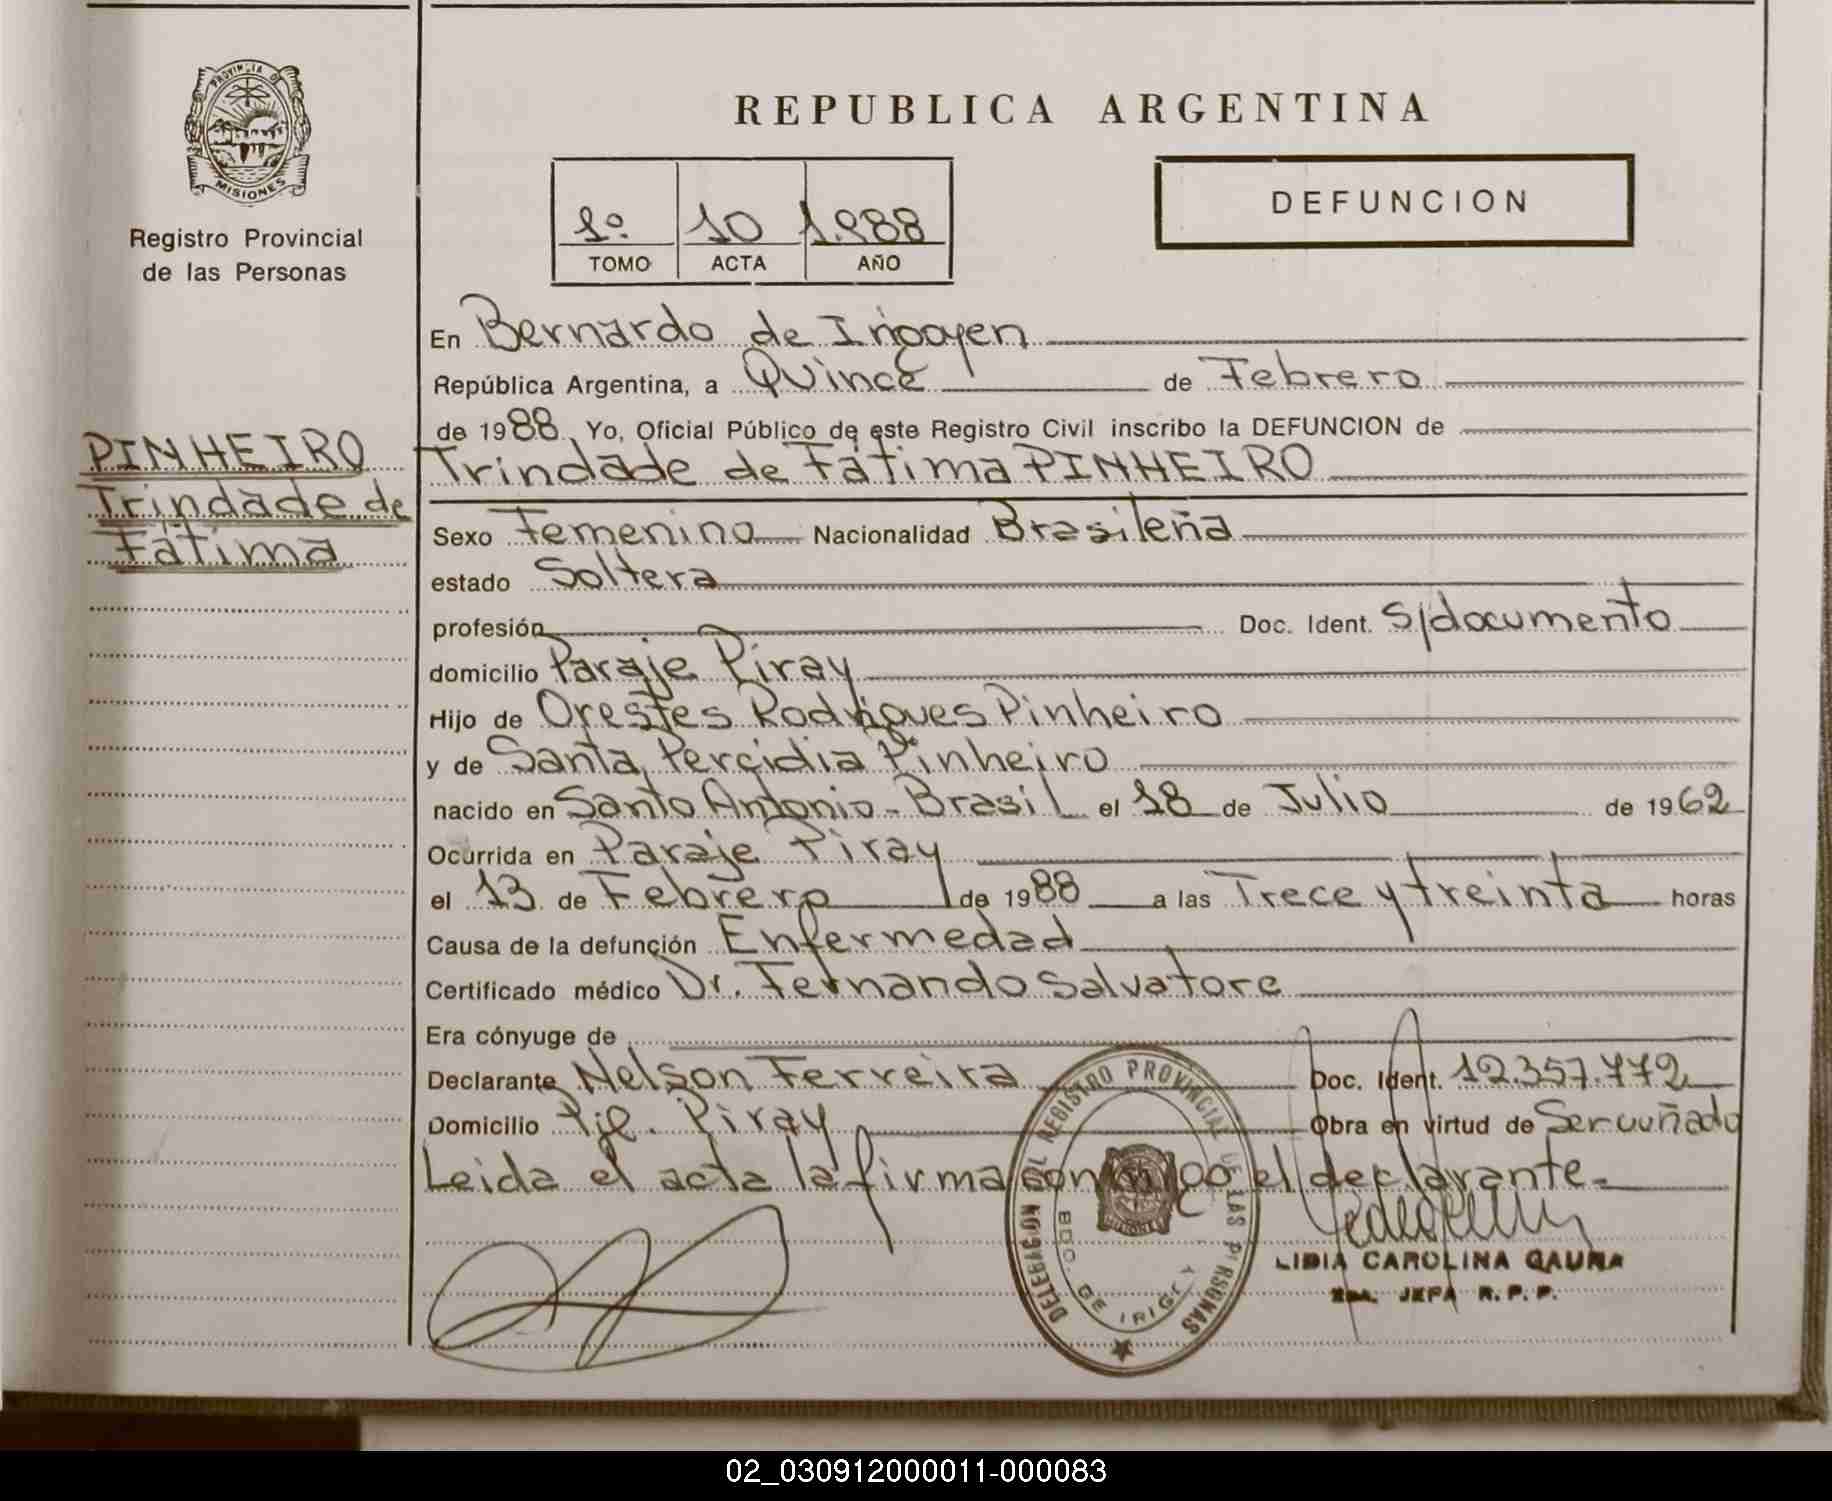 PROVINCIA DE
MISIONES
Registro Provincial
de las Personas
PINHEIRO
Trindade de
Fátima
REPUBLICA ARGENTINA
1º 10 1.988
TOMO ACTA AÑO
DEFUNCION
En Bernardo de Irigoyen
República Argentina, a Quince de Febrero
de 1988. Yo, Oficial Público de este Registro Civil inscribo la DEFUNCION de
Trindade de Fátima PINHEIRO
Sexo Femenino Nacionalidad Brasileña
estado Soltera
profesión Doc. Ident. S/documento
domicilio Paraje Piray
Hijo de Orestes Rodrigues Pinheiro
y de Santa Percidia Pinheiro
nacido en Santo Antonio - Brasil el 18 de Julio de 1962
Ocurrida en Paraje Piray
el 13 de Febrero de 1988 a las Trece y treinta horas
Causa de la defunción Enfermedad
Certificado médico Dr. Fernando Salvatore
Era cónyuge de
Declarante Nelson Ferreira Doc. Ident. 12.357.772
Domicilio Pje. Piray Obra en virtud de Ser cuñado
Leida el acta la firma conmigo el declarante.
DELEGACION DEL REGISTRO PROVINCIAL DE LAS PERSONAS
BDO. DE IRIGOY
LIDIA CAROLINA GAUNA
2da. JEFA R. P. P.
02_030912000011-000083